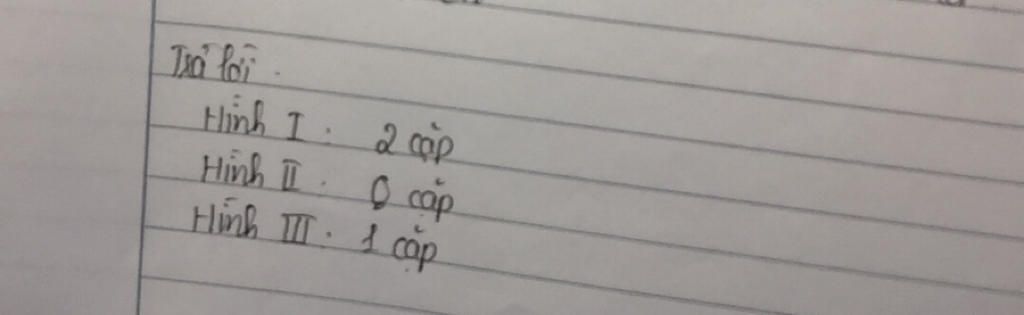 Trả lời.
Hình I: 2 cặp
Hình II: 0 cặp
Hình III: 1 cặp